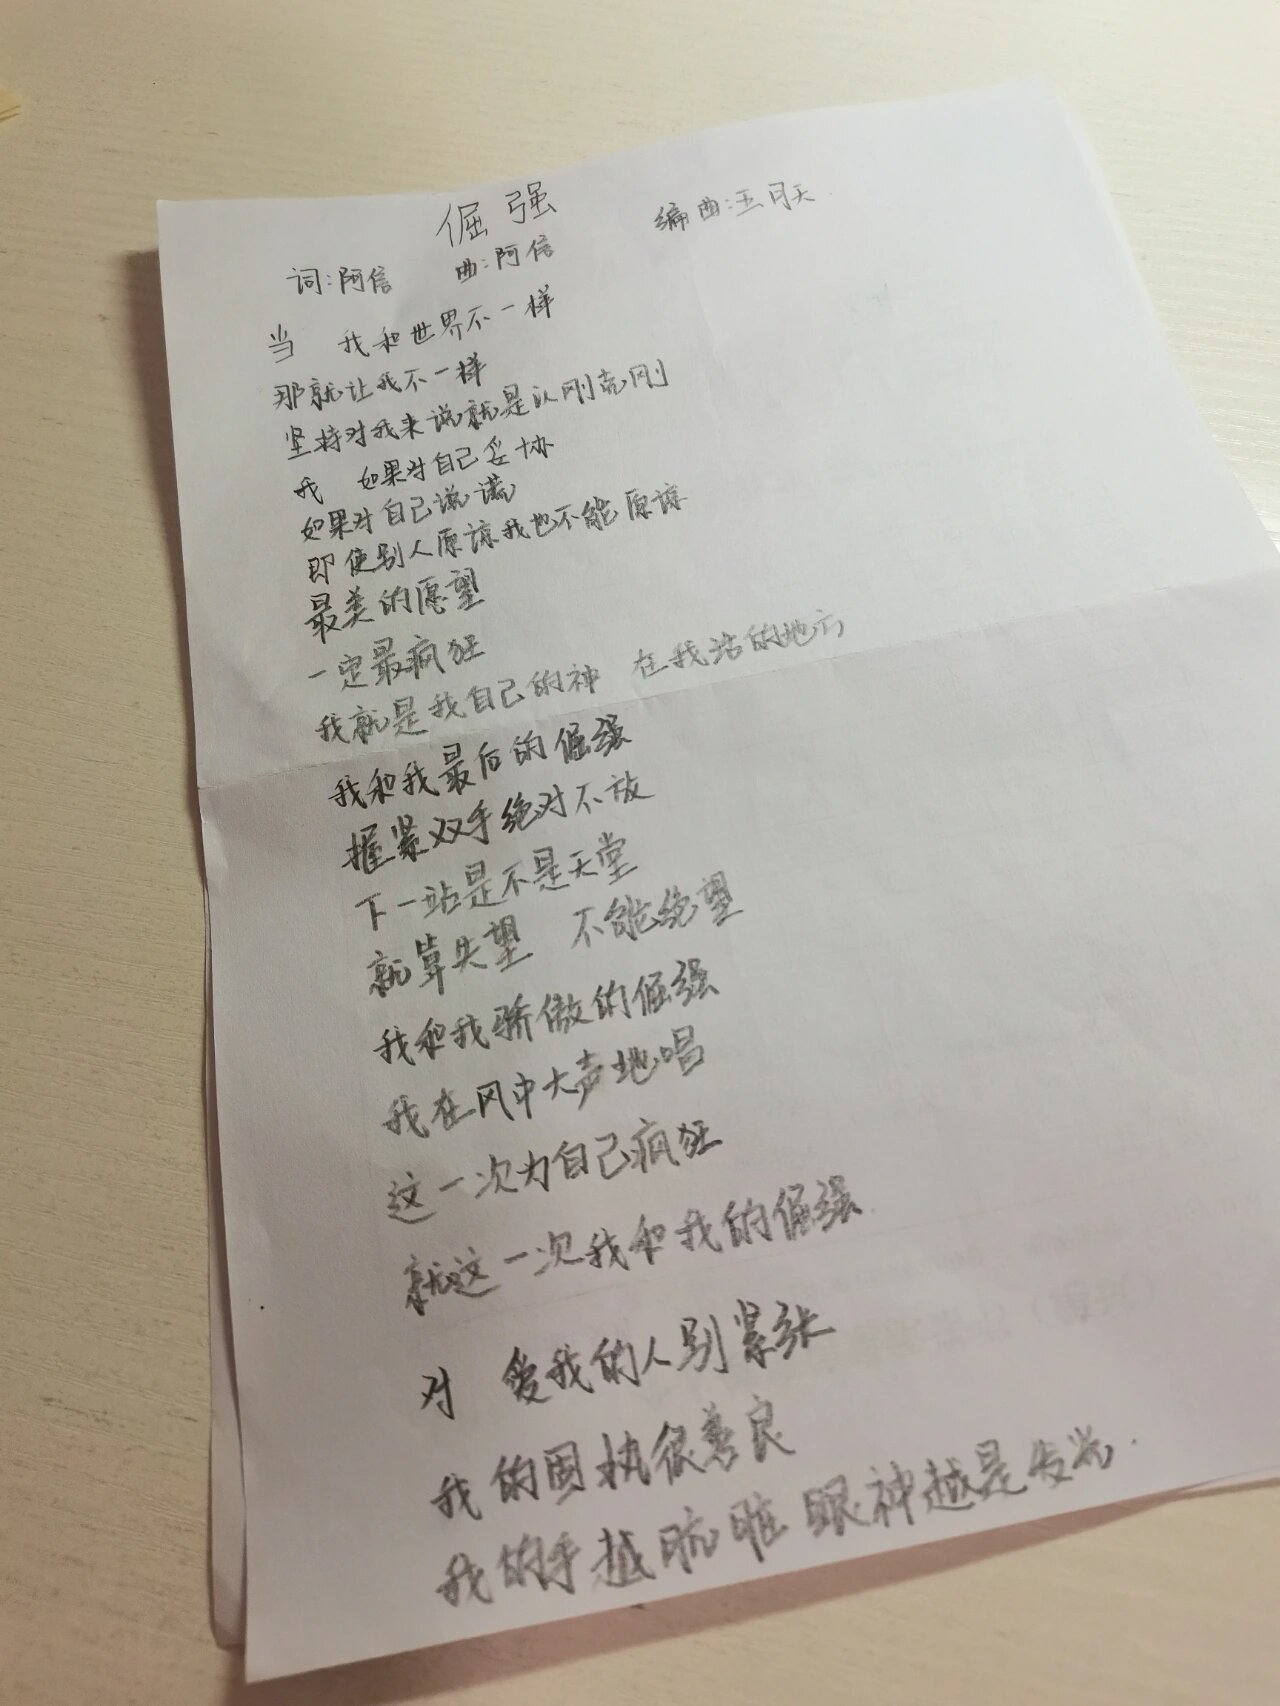 倔强
词:阿信 曲:阿信 编曲:五月天
当 我和世界不一样
那就让我不一样
坚持对我来说就是以刚克刚
我 如果对自己妥协
如果对自己说谎
即使别人原谅我也不能原谅
最美的愿望
一定最疯狂
我就是我自己的神 在我活的地方
我和我最后的倔强
握紧双手绝对不放
下一站是不是天堂
就算失望 不能绝望
我和我骄傲的倔强
我在风中大声地唱
这一次为自己疯狂
就这一次我和我的倔强
对 爱我的人别紧张
我的固执很善良
我的手越肮脏 眼神越是发光